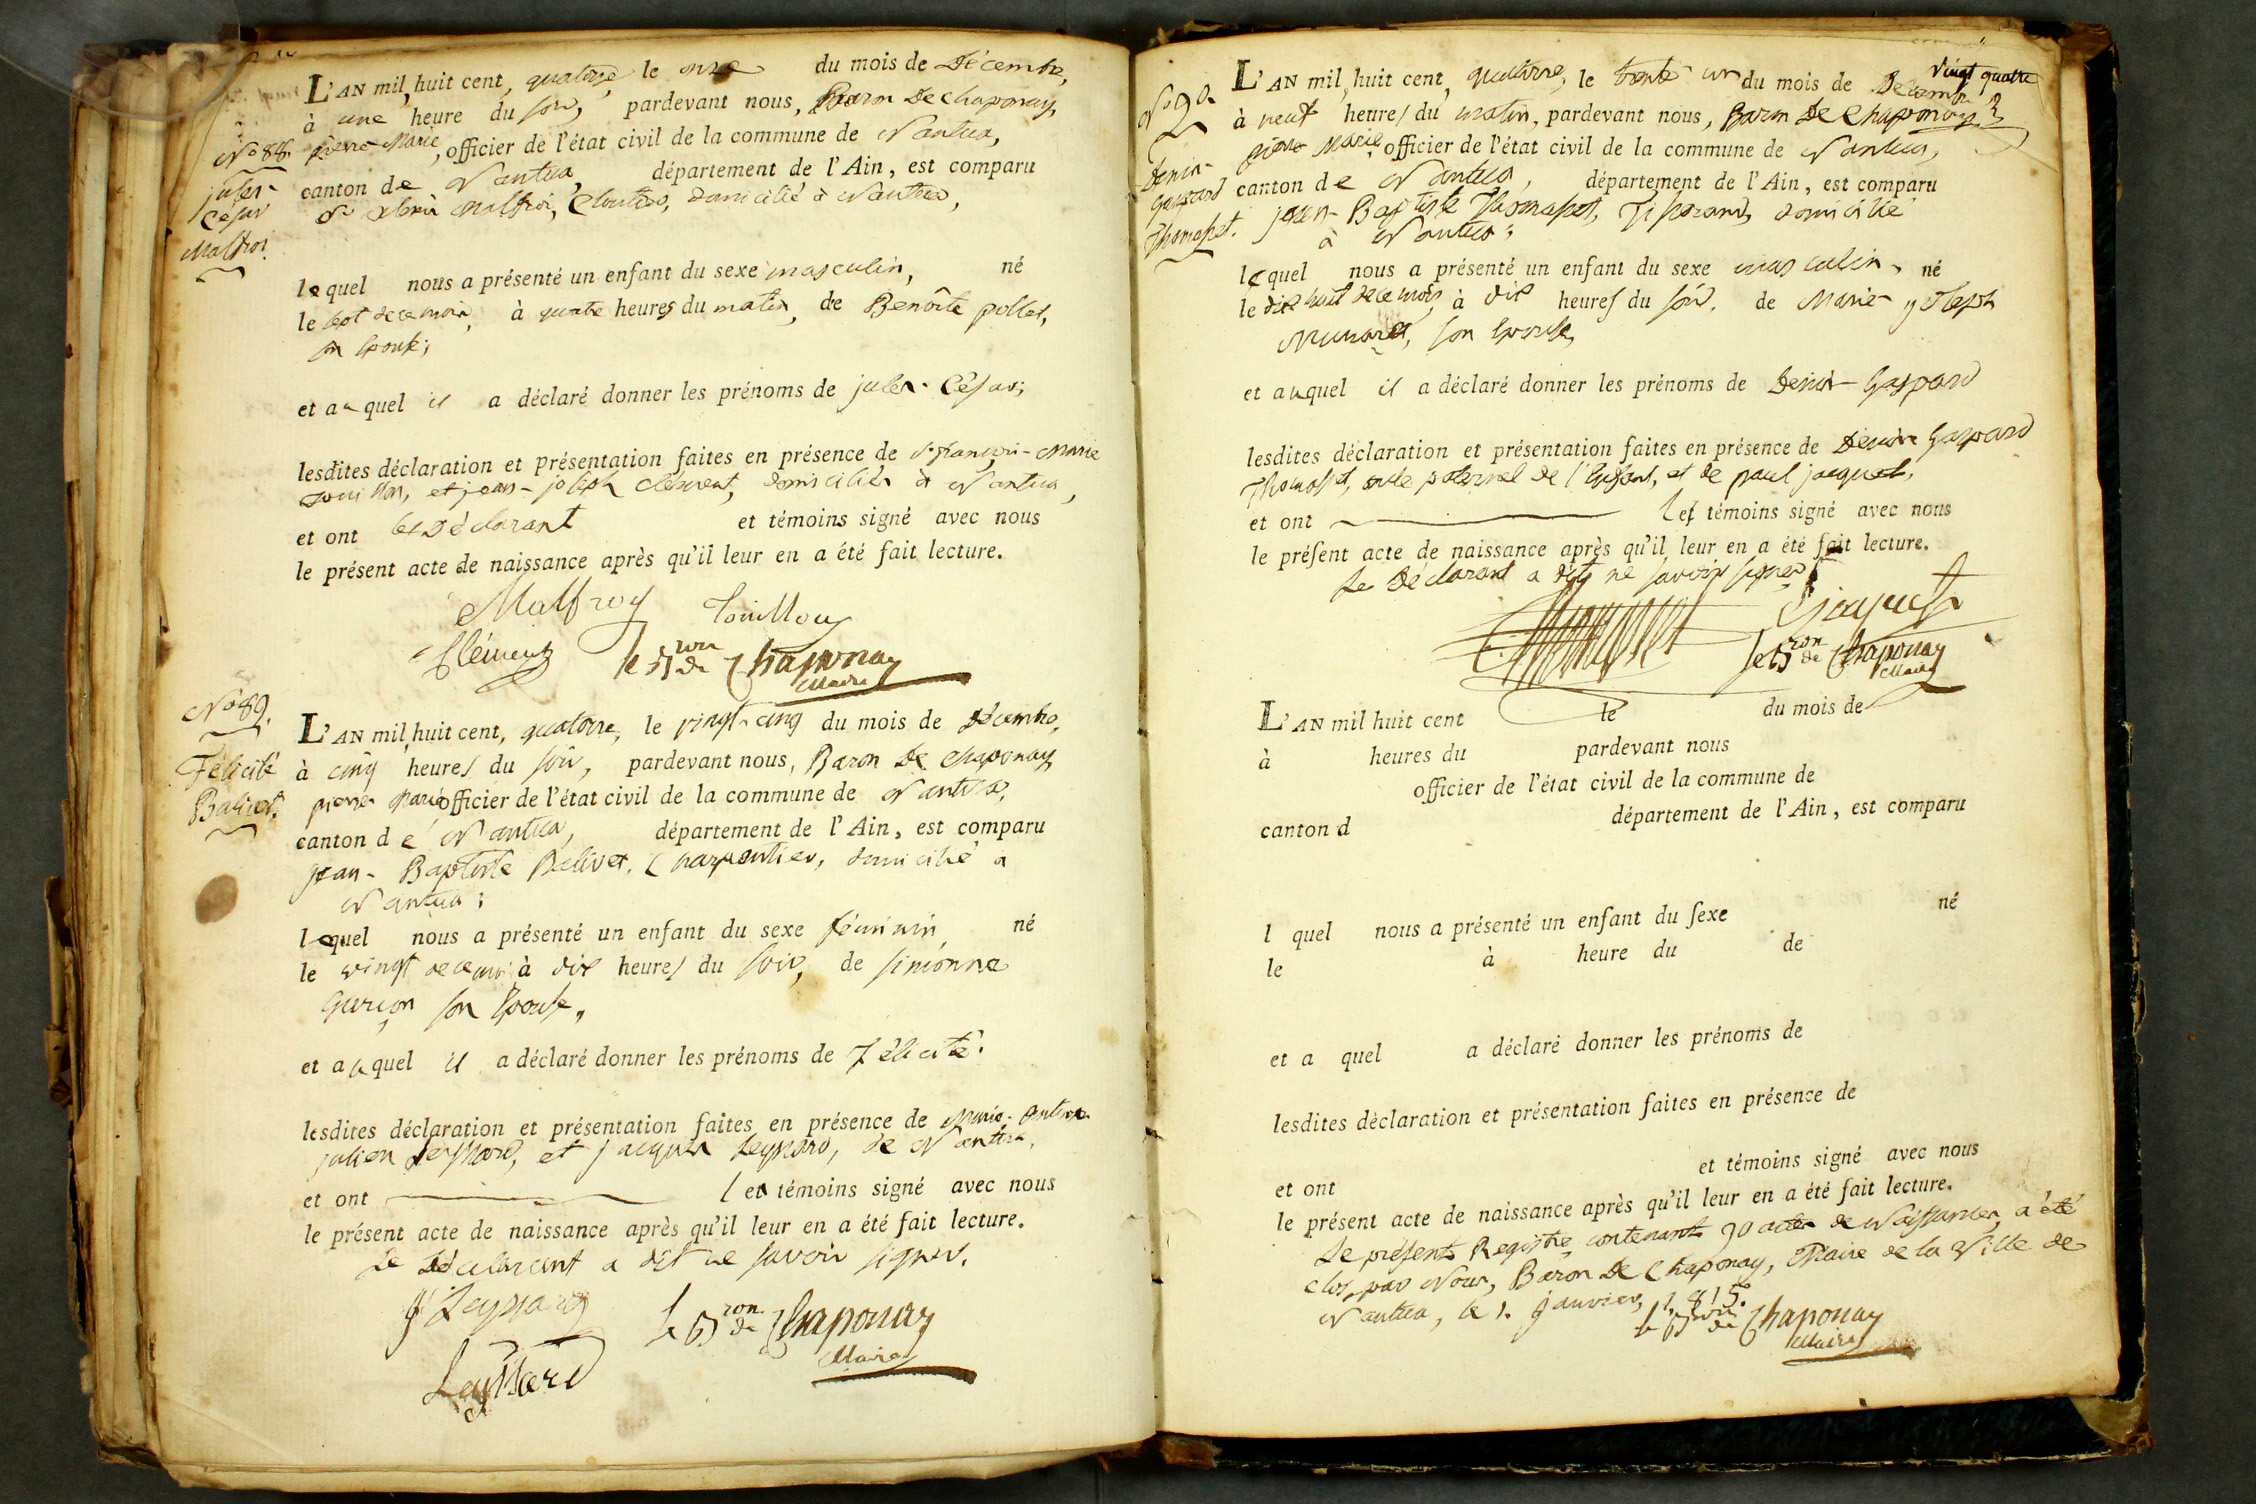 L'AN mil huit cent, quatorze, le onze du mois de Décembre,
à une heure du soir, pardevant nous, Baron De Chaponay,
N.o 88. pierre Marie, officier de l'état civil de la commune de Nantua,
jules-
César
Malfroi.
canton de Nantua, département de l'Ain, est comparu
Malfroi, Cloutier, domicilié à Nantua,
lequel nous a présenté un enfant du sexe masculin, né
le sept de ce mois, à quatre heures du matin, de Benoîte pollet,
son Epouse;
et auquel il a déclaré donner les prénoms de jules-César;
lesdites déclaration et présentation faites en présence de françois-Marie
touillon, et jean-joseph Clément, domiciliés à Nantua,
et ont le Déclarant et témoins signé avec nous
le présent acte de naissance après qu'il leur en a été fait lecture.
Malfroy Touillon
Clément le Bron de Chaponay
Maire
N.o 89.
Félicité
Balivet.
L'AN mil huit cent, quatorze, le vingt-cinq du mois de Décembre,
à cinq heures du soir, pardevant nous, Baron De Chaponay
pierre Marie officier de l'état civil de la commune de Nantua,
canton de Nantua, département de l'Ain, est comparu
jean-Baptiste Balivet, Charpentier, domicilié à
Nantua;
lequel nous a présenté un enfant du sexe féminin, né
le vingt de ce mois à dix heures du soir, de simonne
Gurçon son Epouse,
et auquel il a déclaré donner les prénoms de Félicité.
lesdites déclaration et présentation faites en présence de Marie-Antoine
julien Leyssard, et jacques Leyssard, de Nantua,
et ont les témoins signé avec nous
le présent acte de naissance après qu'il leur en a été fait lecture.
Le Déclarant a dit ne savoir signer.
J Leyssard le Bron de Chaponay
Maire
Leyssard
N.o 90.
Denis-
Gaspard
Thomasset.
L'AN mil huit cent, quatorze, le trente un du mois de Décembre vingt quatre
à neuf heures du matin, pardevant nous, Baron De Chaponay
pierre Marie officier de l'état civil de la commune de Nantua,
canton de Nantua, département de l'Ain, est comparu
jean-Baptiste Thomasset, Tisserand, domicilié
à Nantua;
lequel nous a présenté un enfant du sexe masculin, né
le dix huit de ce mois, à dix heures du soir, de Marie-joseph
son Epouse,
et auquel il a déclaré donner les prénoms de Denis-Gaspard
lesdites déclaration et présentation faites en présence de Denis Gaspard
Thomasset, oncle paternel de l'Enfant, et de paul jacquet,
et ont les témoins signé avec nous
le présent acte de naissance après qu'il leur en a été fait lecture.
Le Déclarant a dit ne savoir signer
Jaquet
le Bron de Chaponay
Maire
L'AN mil huit cent le du mois de
à heures du pardevant nous
officier de l'état civil de la commune de
canton d département de l'Ain, est comparu
l quel nous a présenté un enfant du sexe né
le à heure du de
et a quel a déclaré donner les prénoms de
lesdites déclaration et présentation faites en présence de
et ont et témoins signé avec nous
le présent acte de naissance après qu'il leur en a été fait lecture.
Le présent Registre contenant 90 actes de Naissances, a été
clos par Nous, Baron De Chaponay, Maire de la Ville de
Nantua, le 1. janvier 1815.
le Bron de Chaponay
Maire